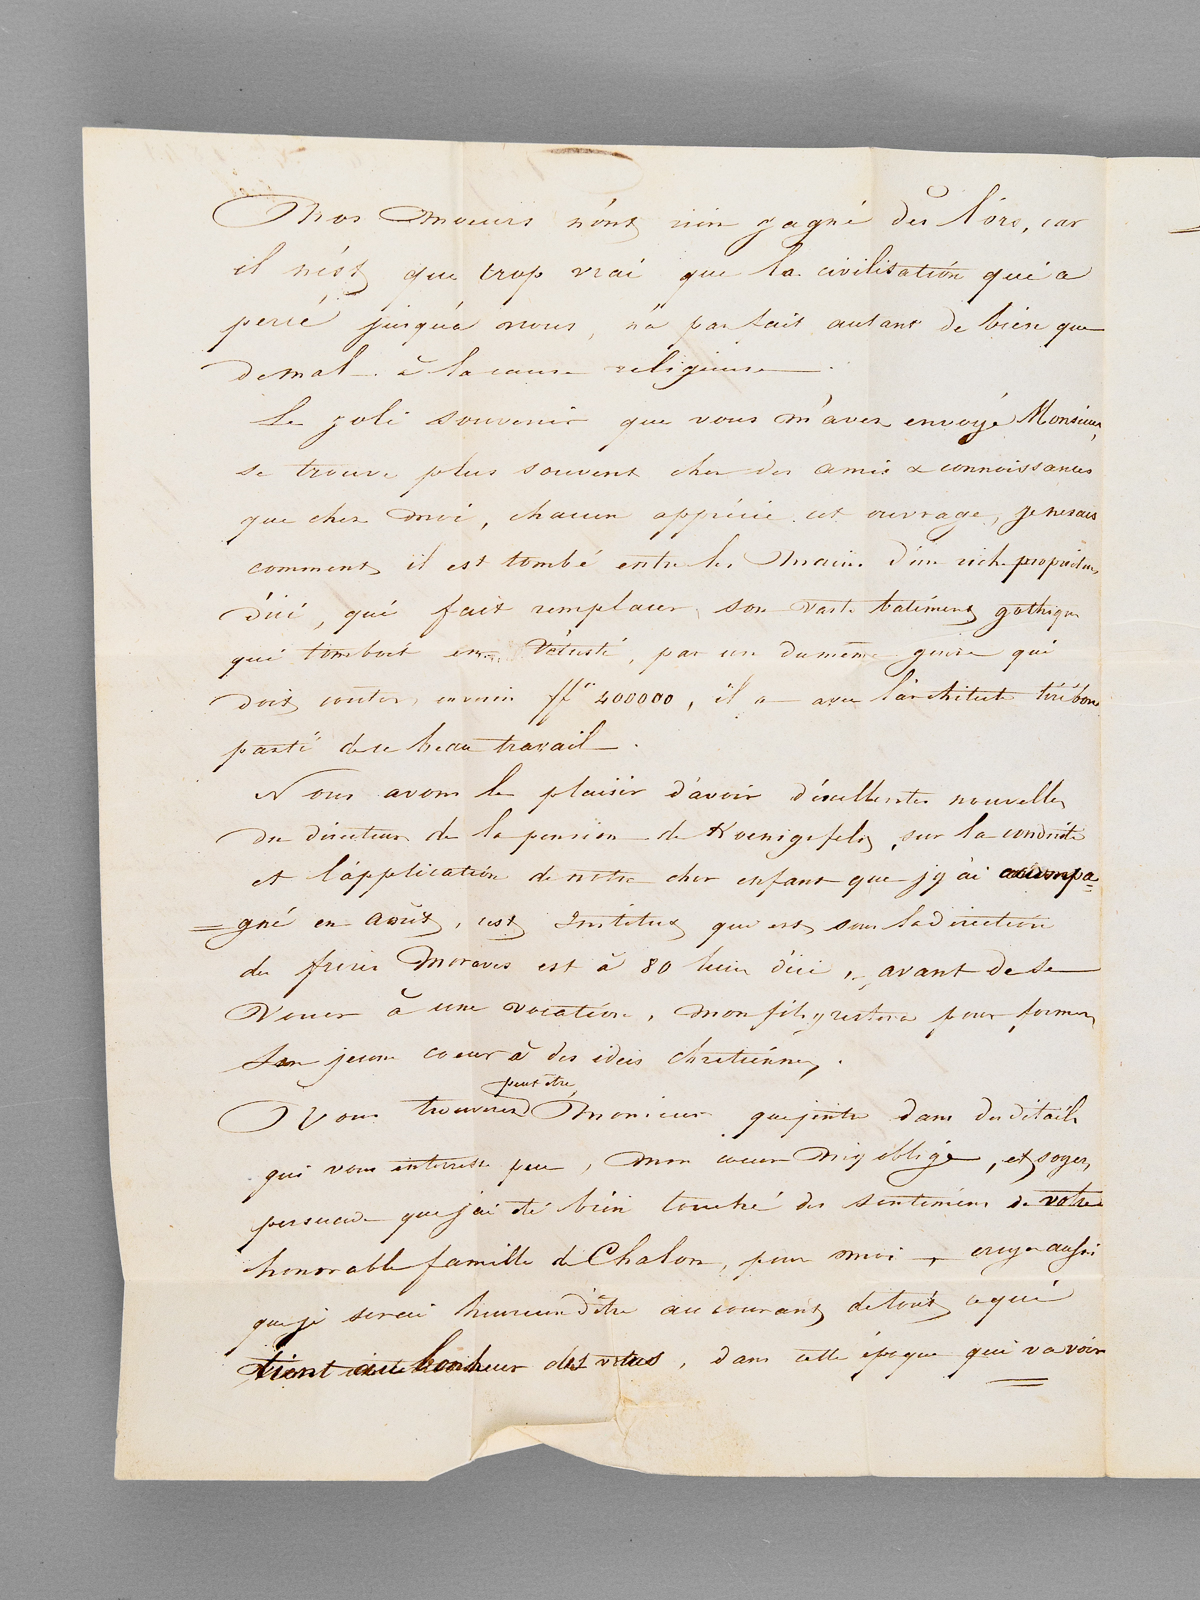 Nos moeurs n'ont rien gagné dès lòrs, car
il n'ést que trop vrai que la civilisation qui a
percé jusqu'à nous, n'a pas fait autant de bien que
de mal à la cause religieuse.
Le joli souvenir que vous m'avez envoyé Monsieur,
se trouve plus souvent chez des amis & connoissances
que chez moi, chacun apprécie cet ouvrage, je ne sais
comment il est tombé entre les mains d'un riche propriétaire
d'ici, qui fait remplacer son vaste batiment gothique
qui tomboit en vétusté, par un du même genre qui
doit couter environ 400000, il a avec l'architecte tiré bon
parti de ce beau travail.
Nous avons le plaisir d'avoir d'éxcellentes nouvelles
du directeur de la pension de Koenigsfeld, sur la conduite
et l'application de notre cher enfant que j'y ai accompa=
=gné en août, cet Institut qui est sous la direction
des frères Moraves est à 80 lieues d'ici, avant de se
vouer à une vocation, mon fils y restera pour former
son jeune coeur à des idées chrétiennes.
peut être
Vous trouverez Monsieur que j'entre dans des détails
qui vous intéresse peu, mon coeur m'y oblige, et soyez
persuadé que j'ai été bien touché des sentimens de votre
honorable famille de Chalon, pour moi, croyez aussi
que je serai heureux d'être au courant de tout ce qui
tient au bonheur des votres, dans cette époque qui va voir